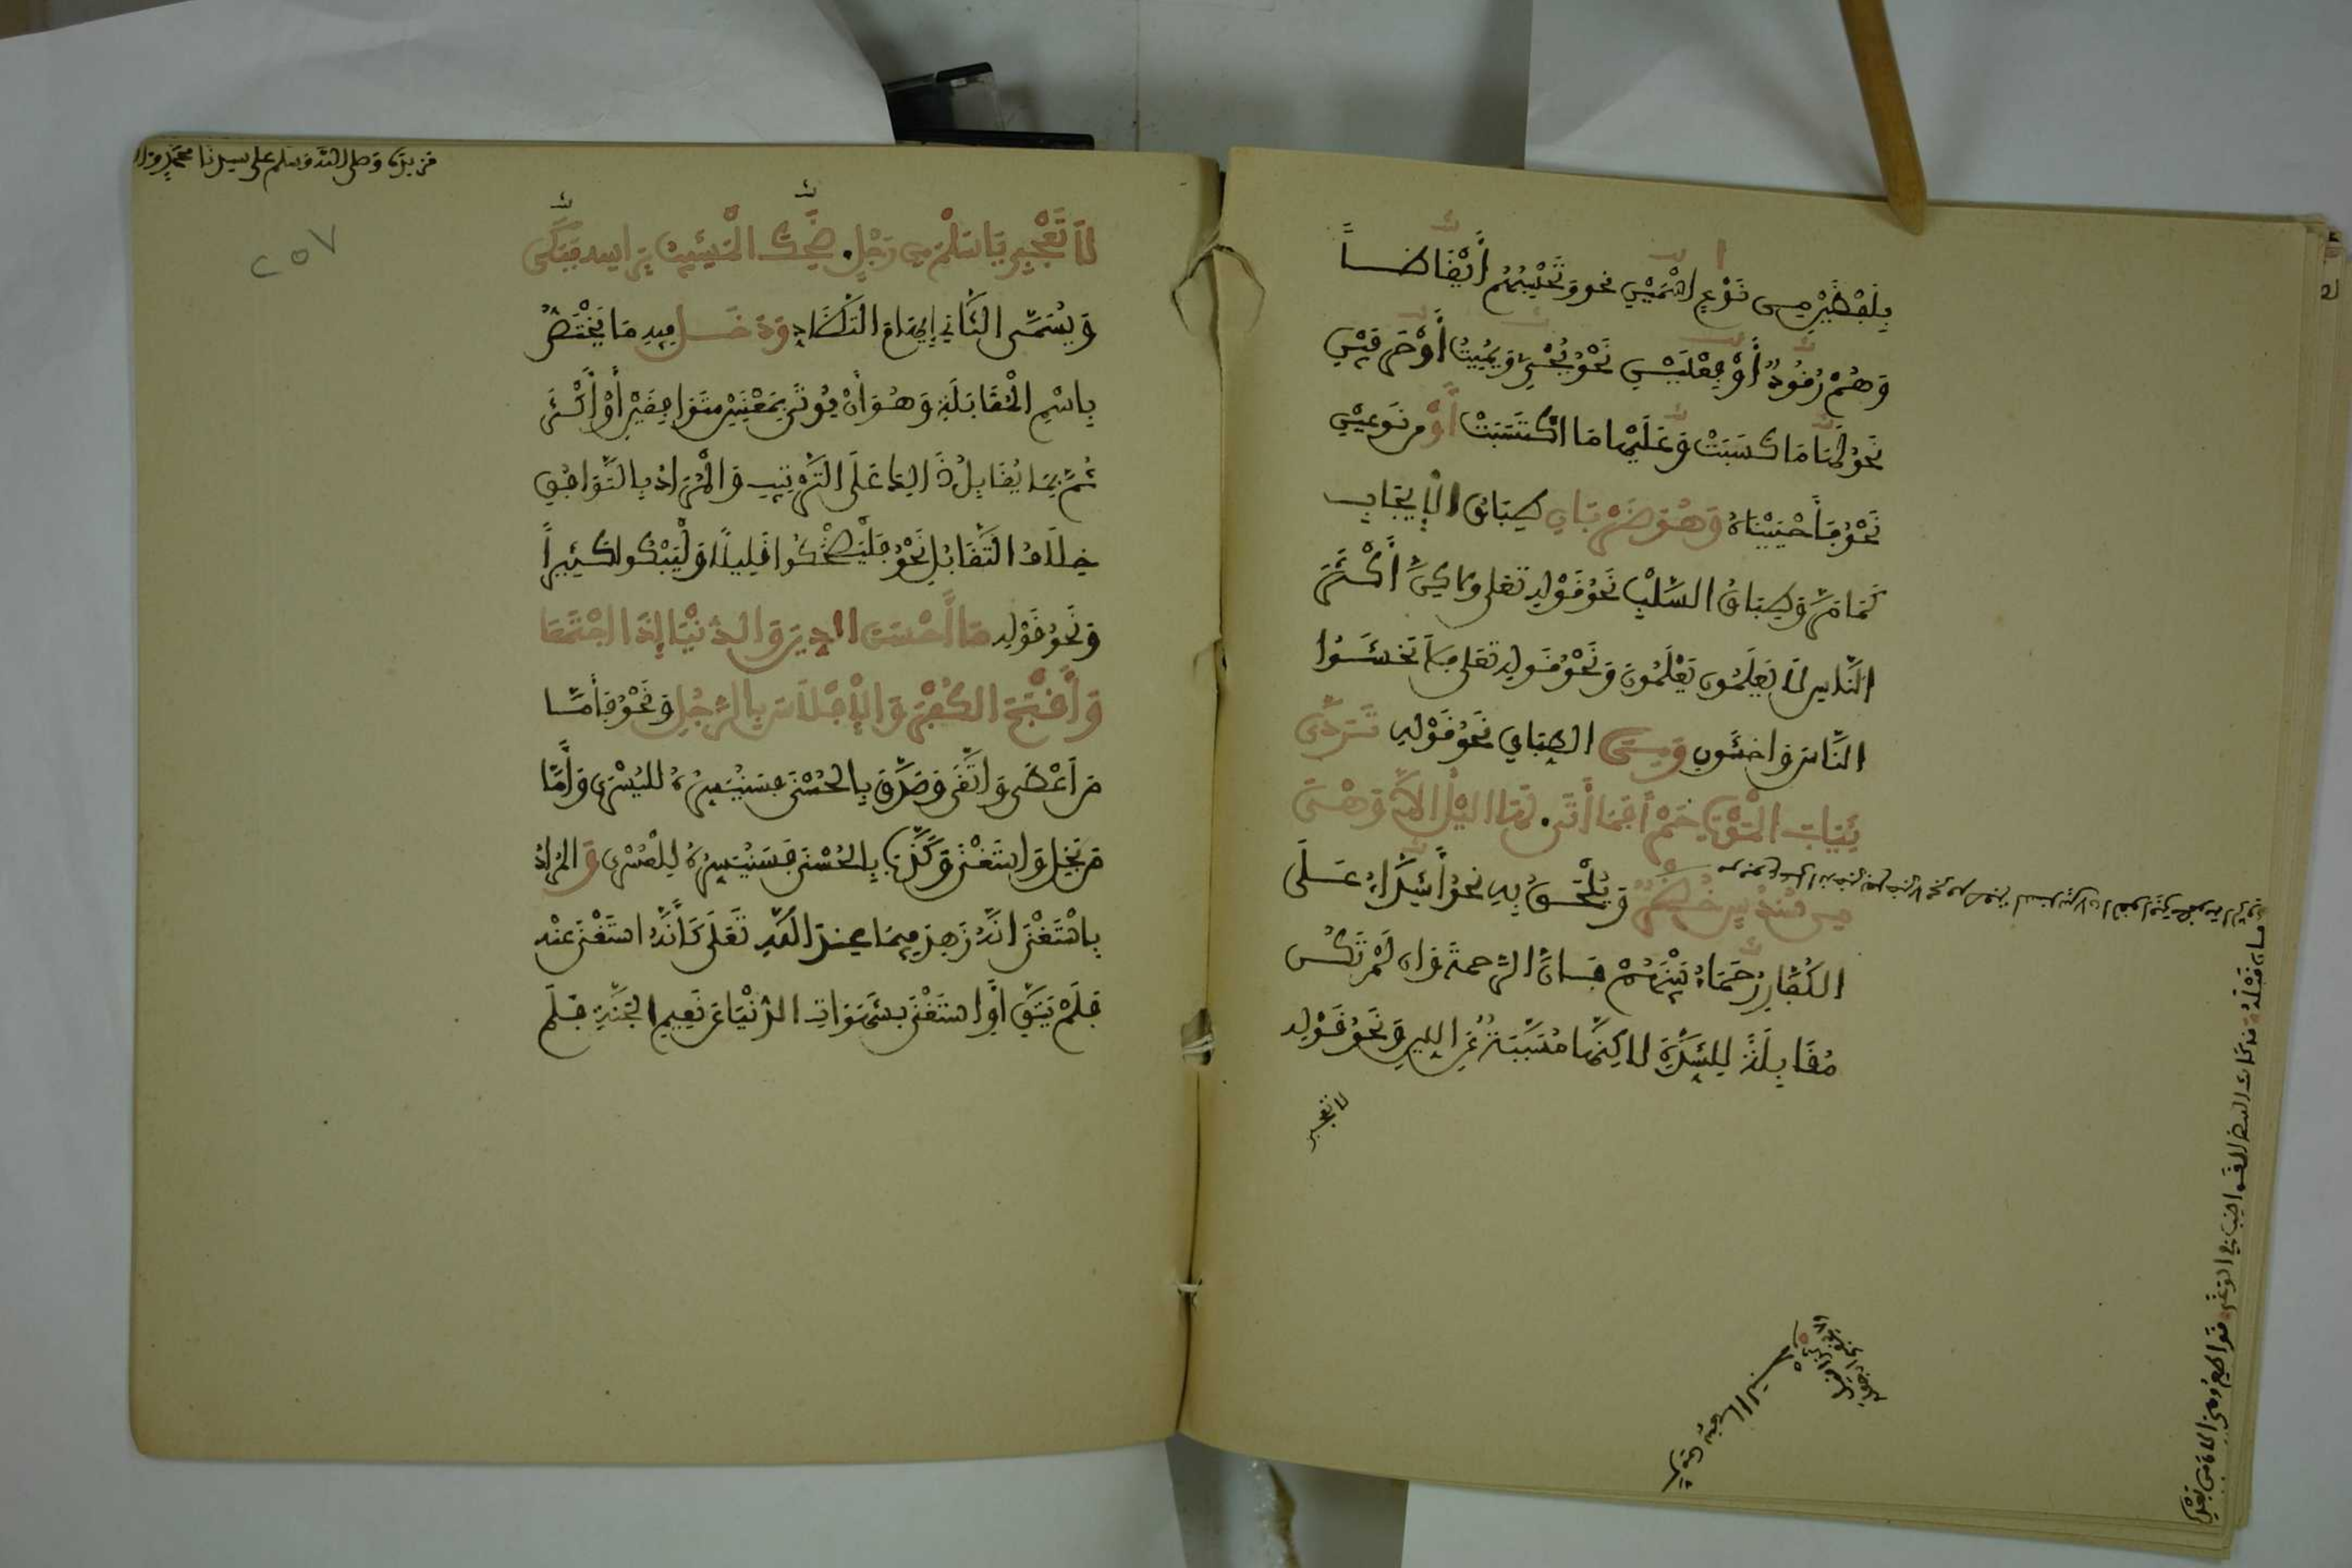 بِلَفْظَيْنِ مِن نَوْعٍ اسْمَيْنِ نحو وَتَحْسِبُهُمُ أَيْقَاظًا
وَهُمْ رُقُودٌ أَوْ فِعْلَيْنِ نَحْوُ يُحْيِي وَيُمِيتُ أَوْ حَرْفَيْنِ
نَحْوُ لَهَا مَا كَسَبَتْ وَعَلَيْهَا مَا اكْتَسَبَتْ أَوْ من نَوعيْنِ
نَحْوُ فَأَحْيَيْنَاهُ وَهُوَ ضَرْبَانِ طِبَاقُ الْإِيجَابِ
كَمَا مَرَّ وَطِبَاقُ السَّلْبِ نَحْوُ قَوْلِهِ تعلى ولاكِنَّ أَكْثَرَ
النَّاسِ لَا يَعْلَمُونَ يَعْلَمُونَ وَنَحْوُ قَولِهِ تعلى فَلَا تَخْشَوُا
النَّاسَ وَاخْشَوْنِ وَمِنَ الطِّبَاقِ نَحْوُ قَوْلِهِ تَرَدَّى
ثِيَابَ الْمَوْتِ حُمْرًا فَمَا أَتَى. لَهَا اللَّيْلُ إِلَّا وَهْيَ
مِن سُنْدُسٍ خُضْرٌ وَيُلْحَقُ بِهِ نحوُ أَشِدَّاءُ عَلَى
الْكُفَّارِ رُحَمَاءُ بَيْنَهُمْ فإنَّ الرحمةَ وإن لَمْ تَكُن
مُقَابِلَةً لِلشِّدَّةِ لاكِنَّهَا مُسَبَّبَةٌ عَنِ اللينِ وَنَحْوُ قَوْلِهِ
لا تعجبي
وصلى الله وسلم على سيدنا محمد
٢٥٧
لَا تَعْجَبِي يَا سَلْمُ مِن رَجُلٍ. ضَحِكَ الْمَشِيبُ بِرَأسِهِ فَبَكَى
وَيُسَمَّى الثَّانِي إِيهَامَ التَّضَادِ وَدَخَلَ فِيهِ مَا يَخْتَصُّ
بِاسْمِ الْمُقَابَلَةِ وَهُوَ أَنْ يُوتَى بِمَعْنَيَيْنِ مُتَوَافِقَيْنِ أَوْ أَكْثَرَ
ثُمَّ بِمَا يُقَابِلُ ذَالِكَ عَلَى التَّرْتِيبِ وَالْمُرَادُ بِالتَّوَافُقِ
خِلَافُ التَّقَابُلِ نَحْوُ فَلْيَضْحَكُوا قَلِيلًا وَلْيَبْكُوا كَثِيرًا
وَنَحْوُ قَوْلِهِ مَا أَحْسَنَ الدِّينَ وَالدُّنْيَا إِذَا اجْتَمَعَا
وَأَقْبَحَ الْكُفْرَ وَالْإِفْلَاسَ بِالرَّجُلِ وَنَحْوُ فَأَمَّا
مَنَ اعْطَى وَاتَّقَى وَصَدَّقَ بِالْحُسْنَى فَسَنُيَسِّرُهُ لِلْيُسْرَى وَأَمَّا
مَن بَخِلَ وَاسْتَغْنَى وَكَذَّبَ بِالْحُسْنَى فَسَنُيَسِّرُهُ لِلْعُسْرَى وَالْمُرَادُ
بِاسْتَغْنَى أَنَّهُ زَهِدَ فِيمَا عِندَ اللَّهِ تَعَلَى كَأَنَّهُ اسْتَغْنَى عَنْهُ
فَلَمْ يَتَّقِ أَوِ اسْتَغْنَى بِشَهَوَاتِ الدُّنْيَا عَن نَعِيمِ الْجَنَّةِ فَلَمْ